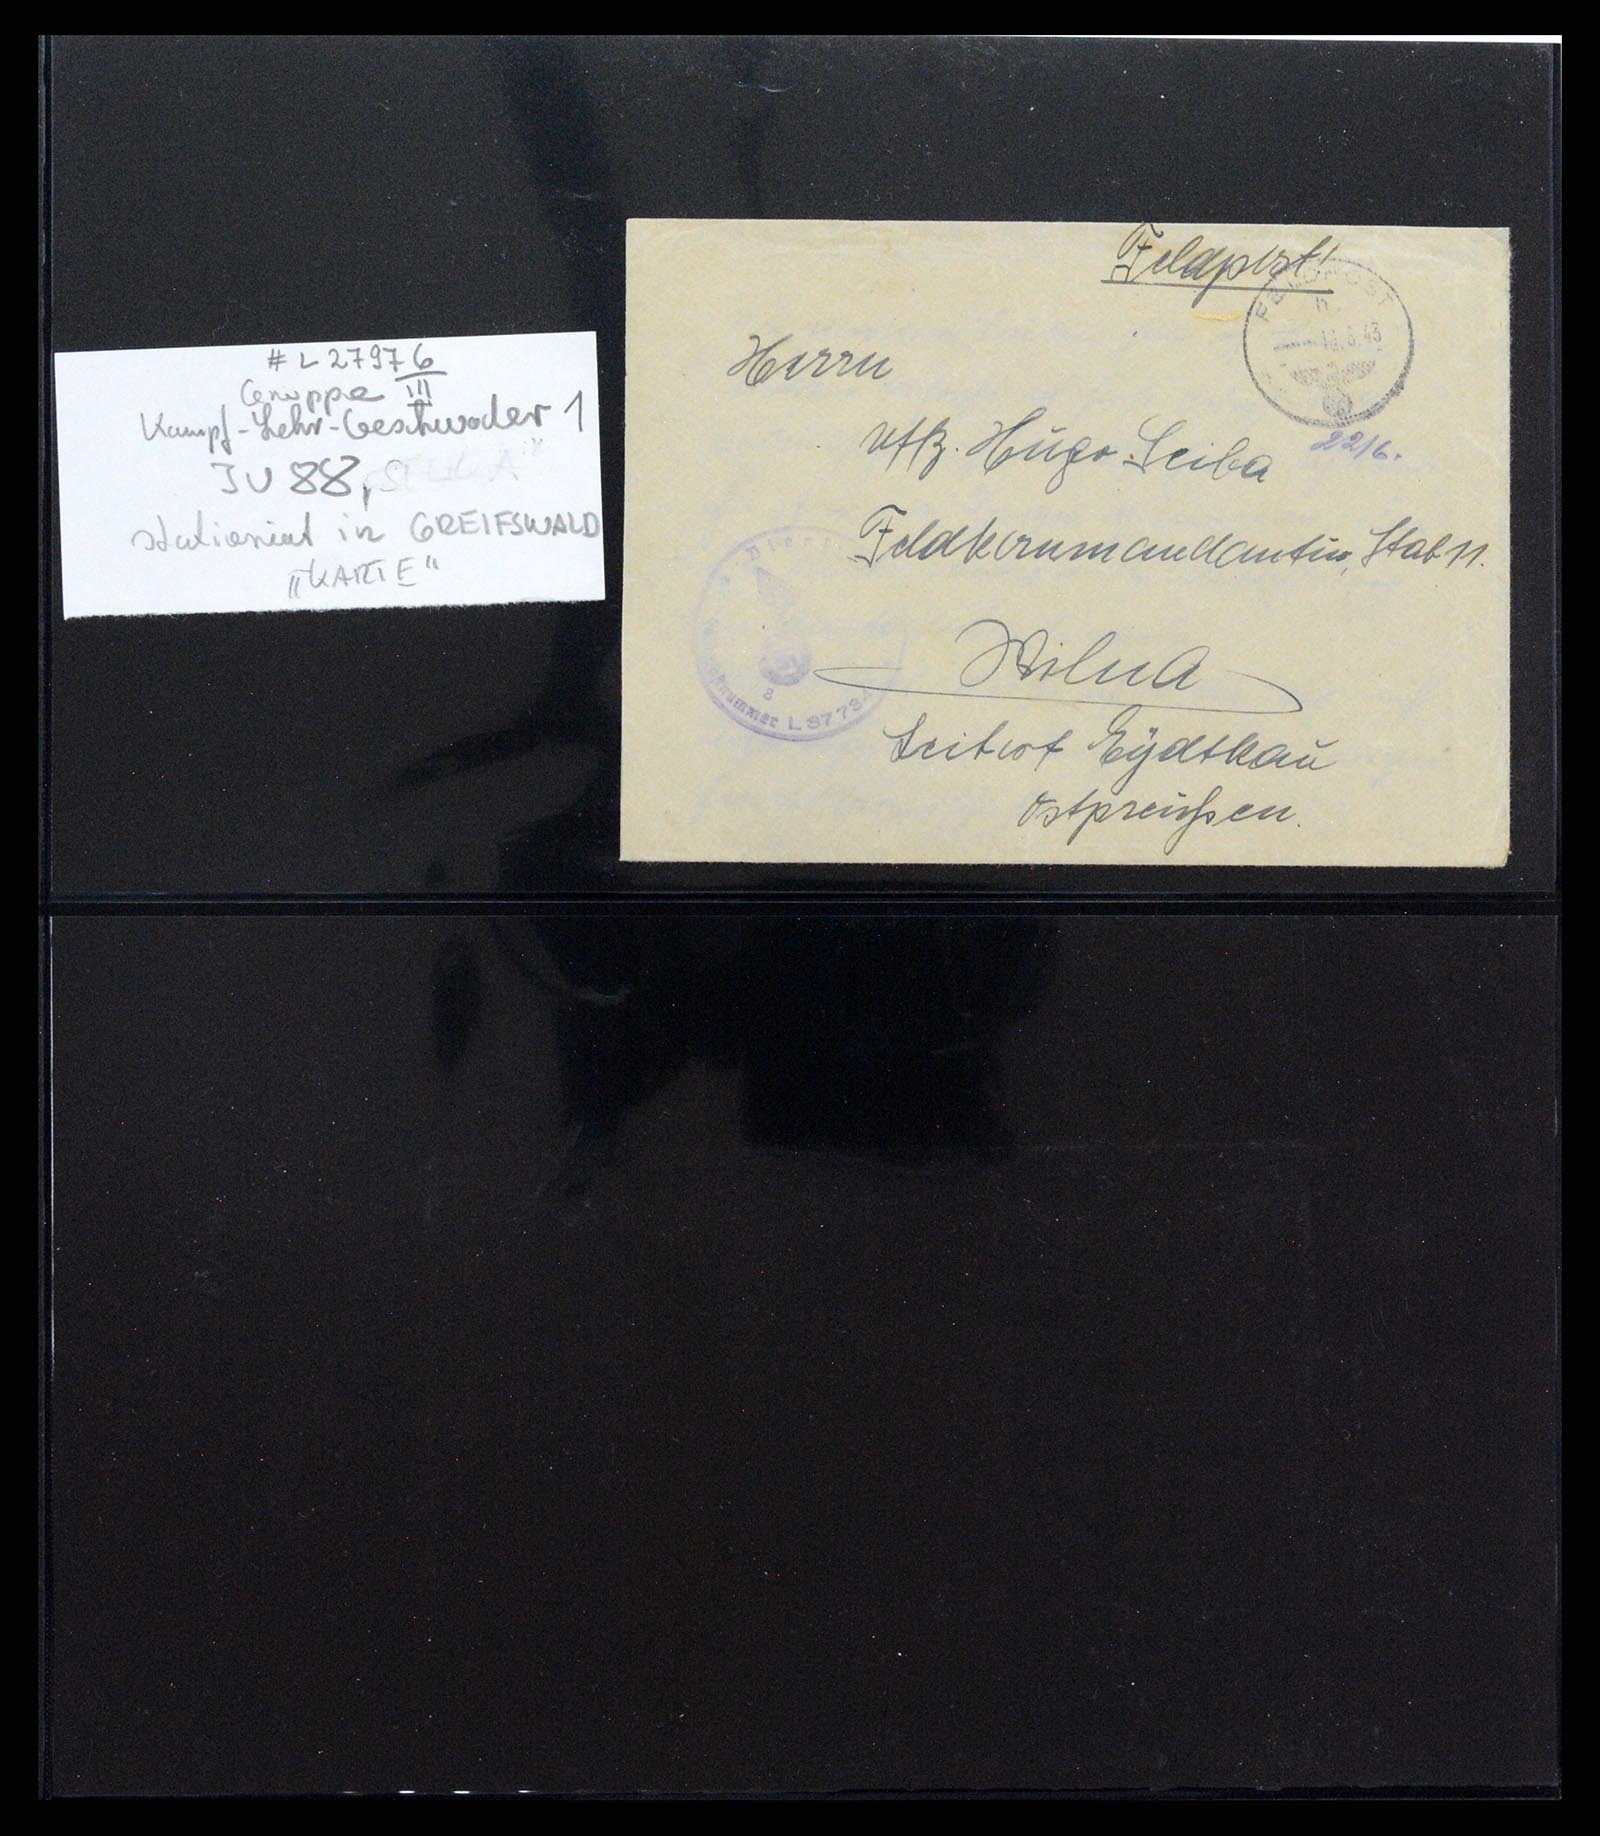 # L 27976
Gruppe III
Kampf-Lehr-Geschwader 1
JU 88, STUKA"
stationiert in GREIFSWALD
„KARTE"
Feldpost!
FELDPOST
h
.6.43
Herrn
22/6.
Uffz. Hugo Seiba
Feldkommandantur, Stab 11.
Wilna
Leitort Eydtkau
Ostpreußen.
8
L 37734